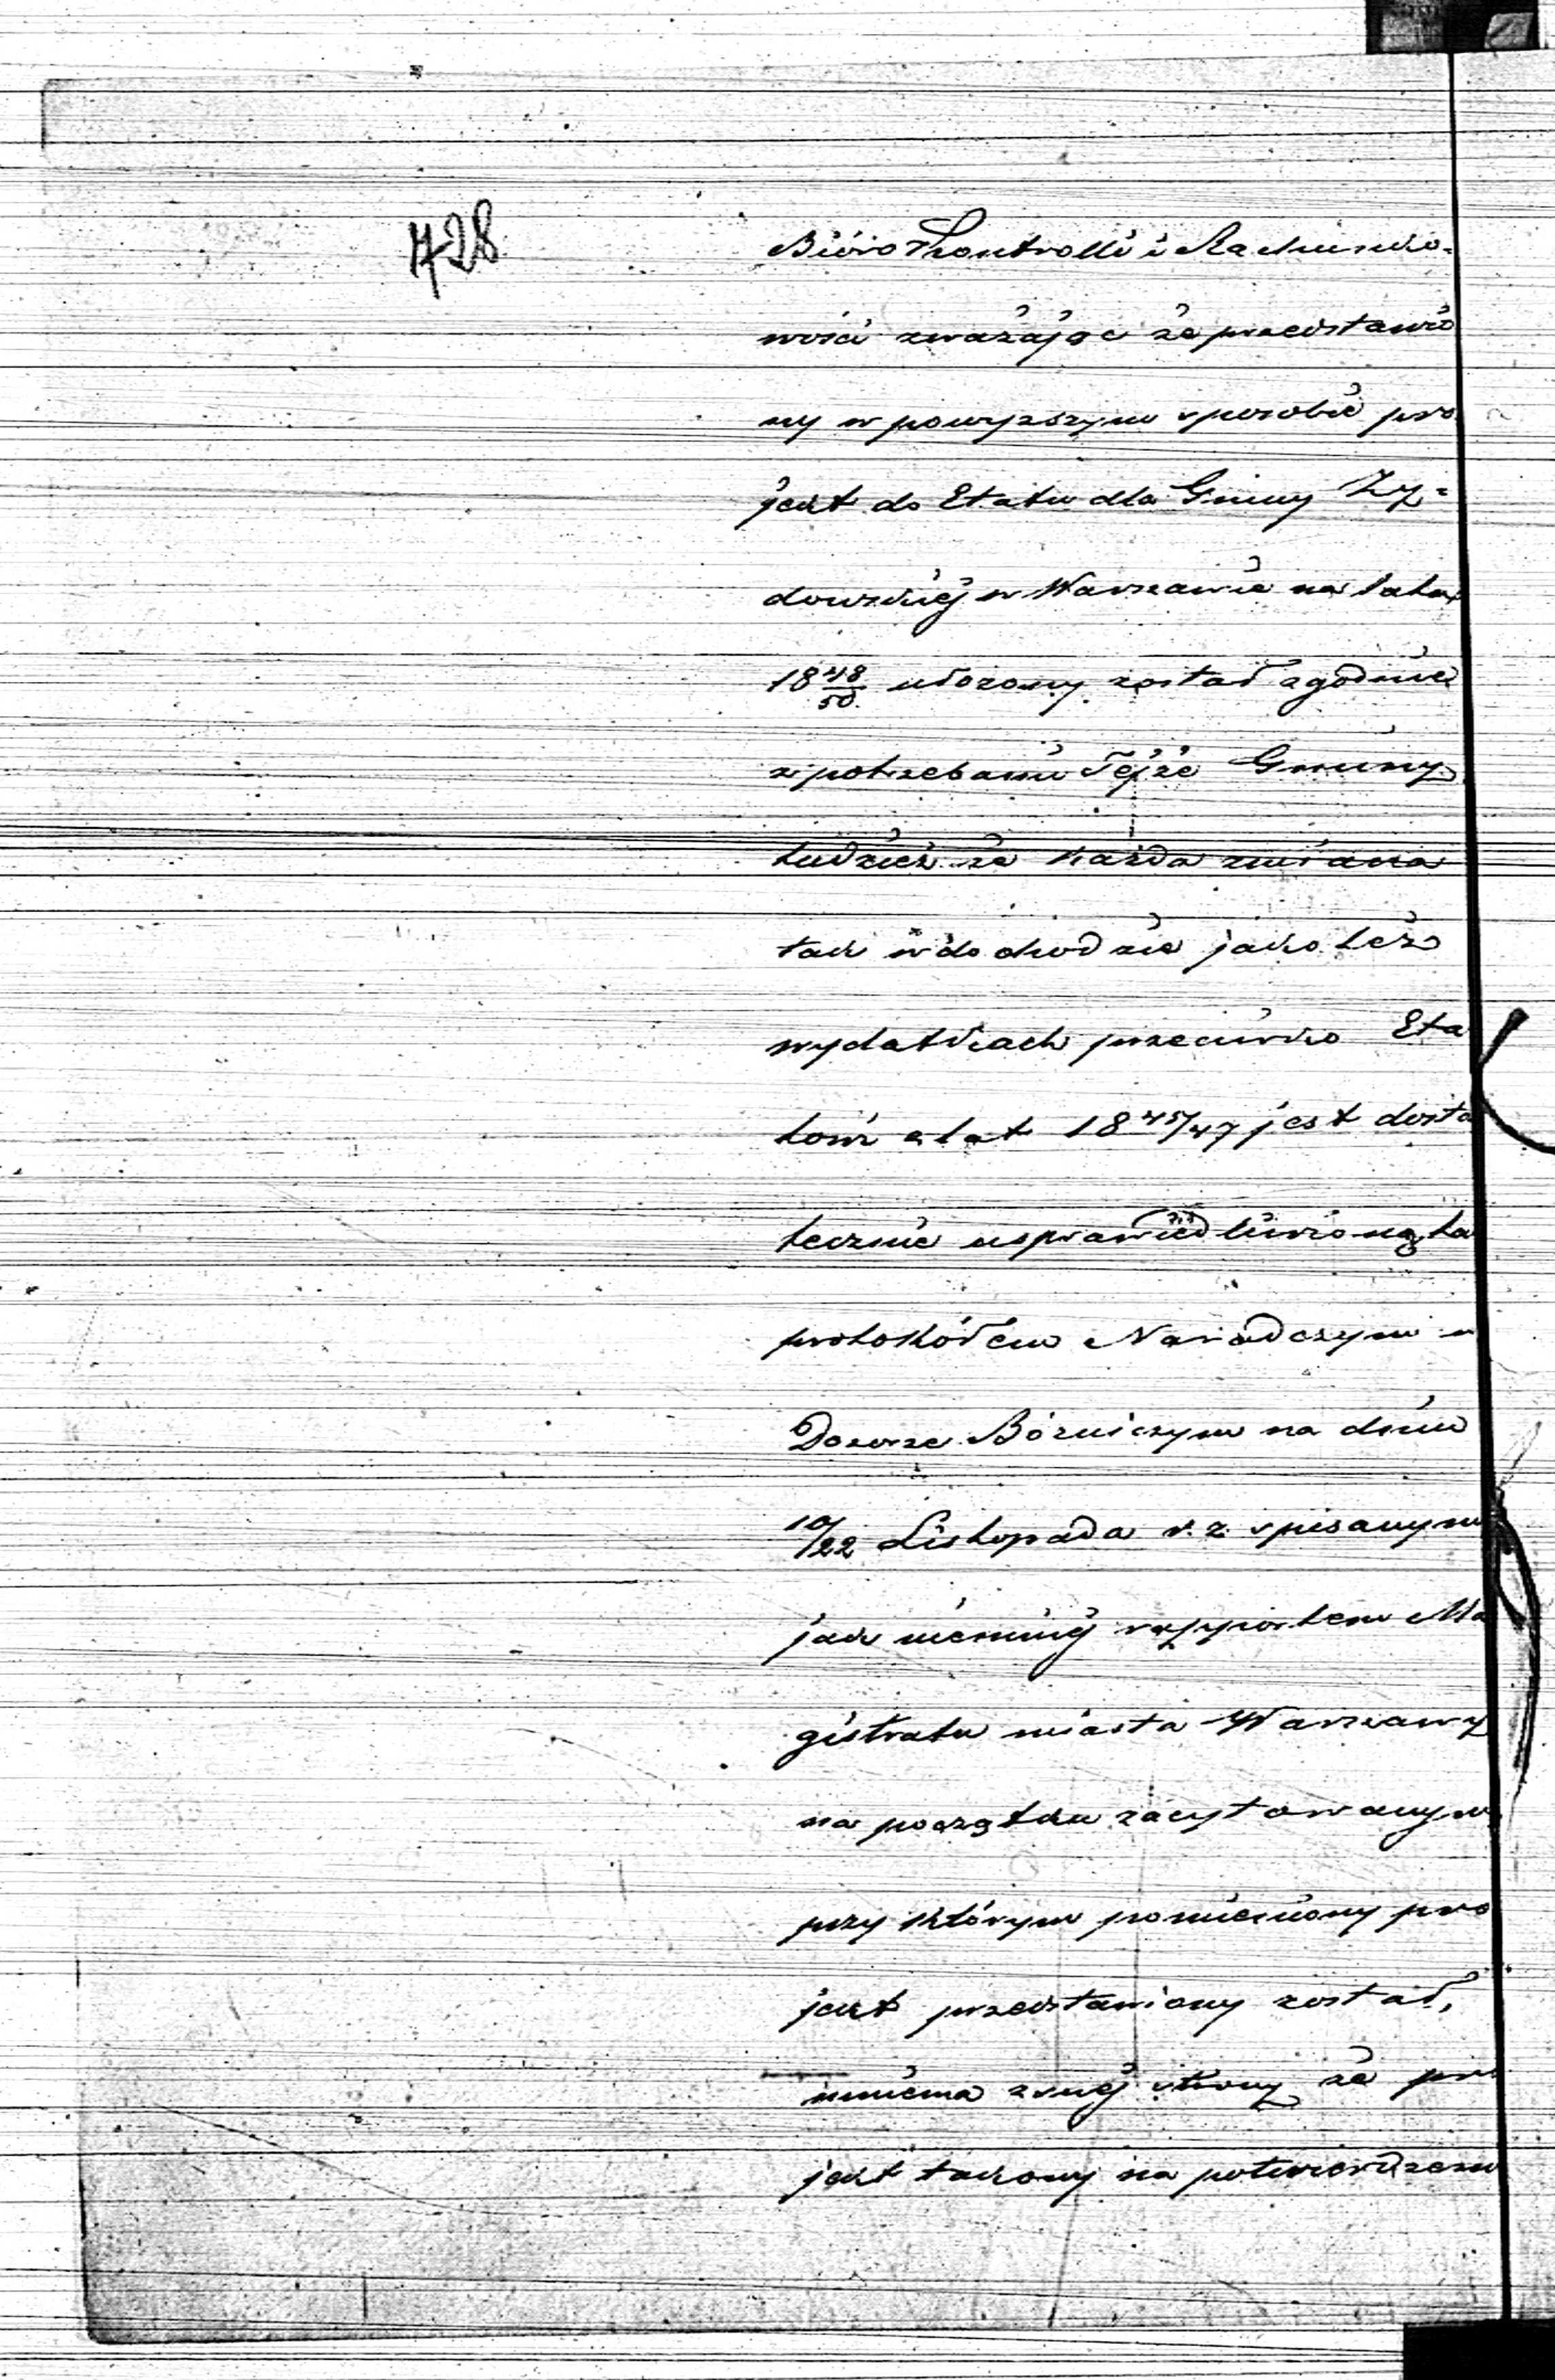 728
Bióro Kontrolli i Rachunko-
wości zważając że przedstawio
ny w powyższym sposobie pro
jekt do Etatu dla Gminy Ży=
dowskiej w Warszawie na lata
18 48/50 ułożony został zgodnie
z potrzebami Tejże Gminy
tudzież że każda zmiana
tak w dochodzie jako też
wydatkach przeciwko Eta
towi z lat 18 45/47 jest dosta
tecznie usprawiedliwioną, ta
protokółem Naradczym w
Dozorze Bóżniczym na dniu
10/22 Listopada r. z. spisanym
jak niemniej rapportem Ma
gistratu miasta Warszawy
na początku zacytowanym
przy którym pomieniony pro
jekt przedstawiony został,
mniema z swej strony że pro
jekt takowy na potwierdzenie